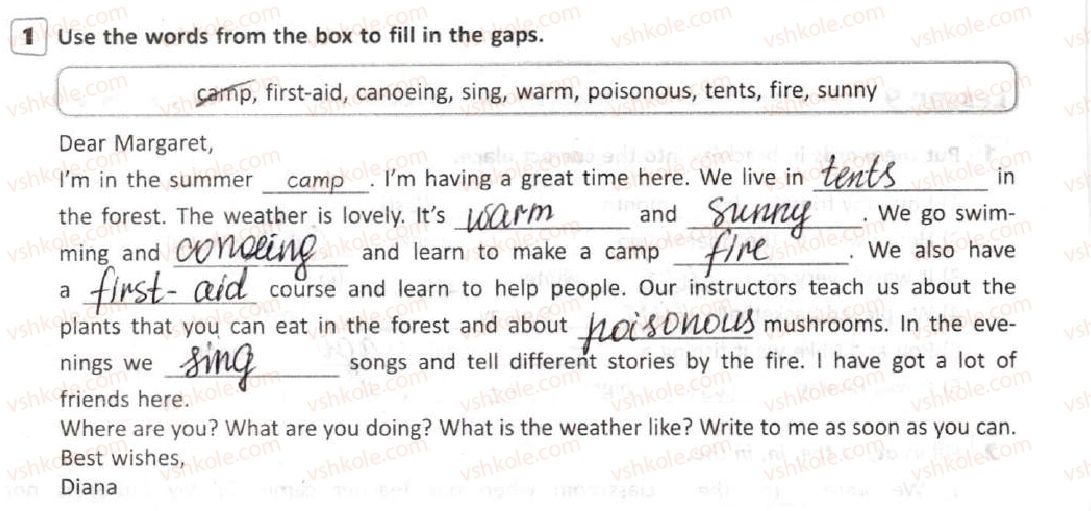 1 Use the words from the box to fill in the gaps.
camp, first-aid, canoeing, sing, warm, poisonous, tents, fire, sunny
Dear Margaret,
I'm in the summer camp. I'm having a great time here. We live in tents in
the forest. The weather is lovely. It's warm and sunny. We go swim-
ming and conoeing and learn to make a camp fire. We also have
a first-aid course and learn to help people. Our instructors teach us about the
plants that you can eat in the forest and about poisonous mushrooms. In the eve-
nings we sing songs and tell different stories by the fire. I have got a lot of
friends here.
Where are you? What are you doing? What is the weather like? Write to me as soon as you can.
Best wishes,
Diana
vshkole.com